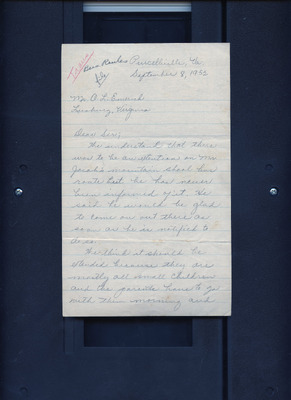 Purcellville, Va.
September 8, 1932
Mr. O. L. Emerick
Leesburg, Virginia
Dear Sir;
We understood that there
was to be an extension on Mr
mountain school bus
route but he has never
been informed of it. He
said he would be glad
to come on out there as
soon as he is notified to
do so.
We think it should be
extended because they are
mostly all small children
and the parents have to go
with them morning and